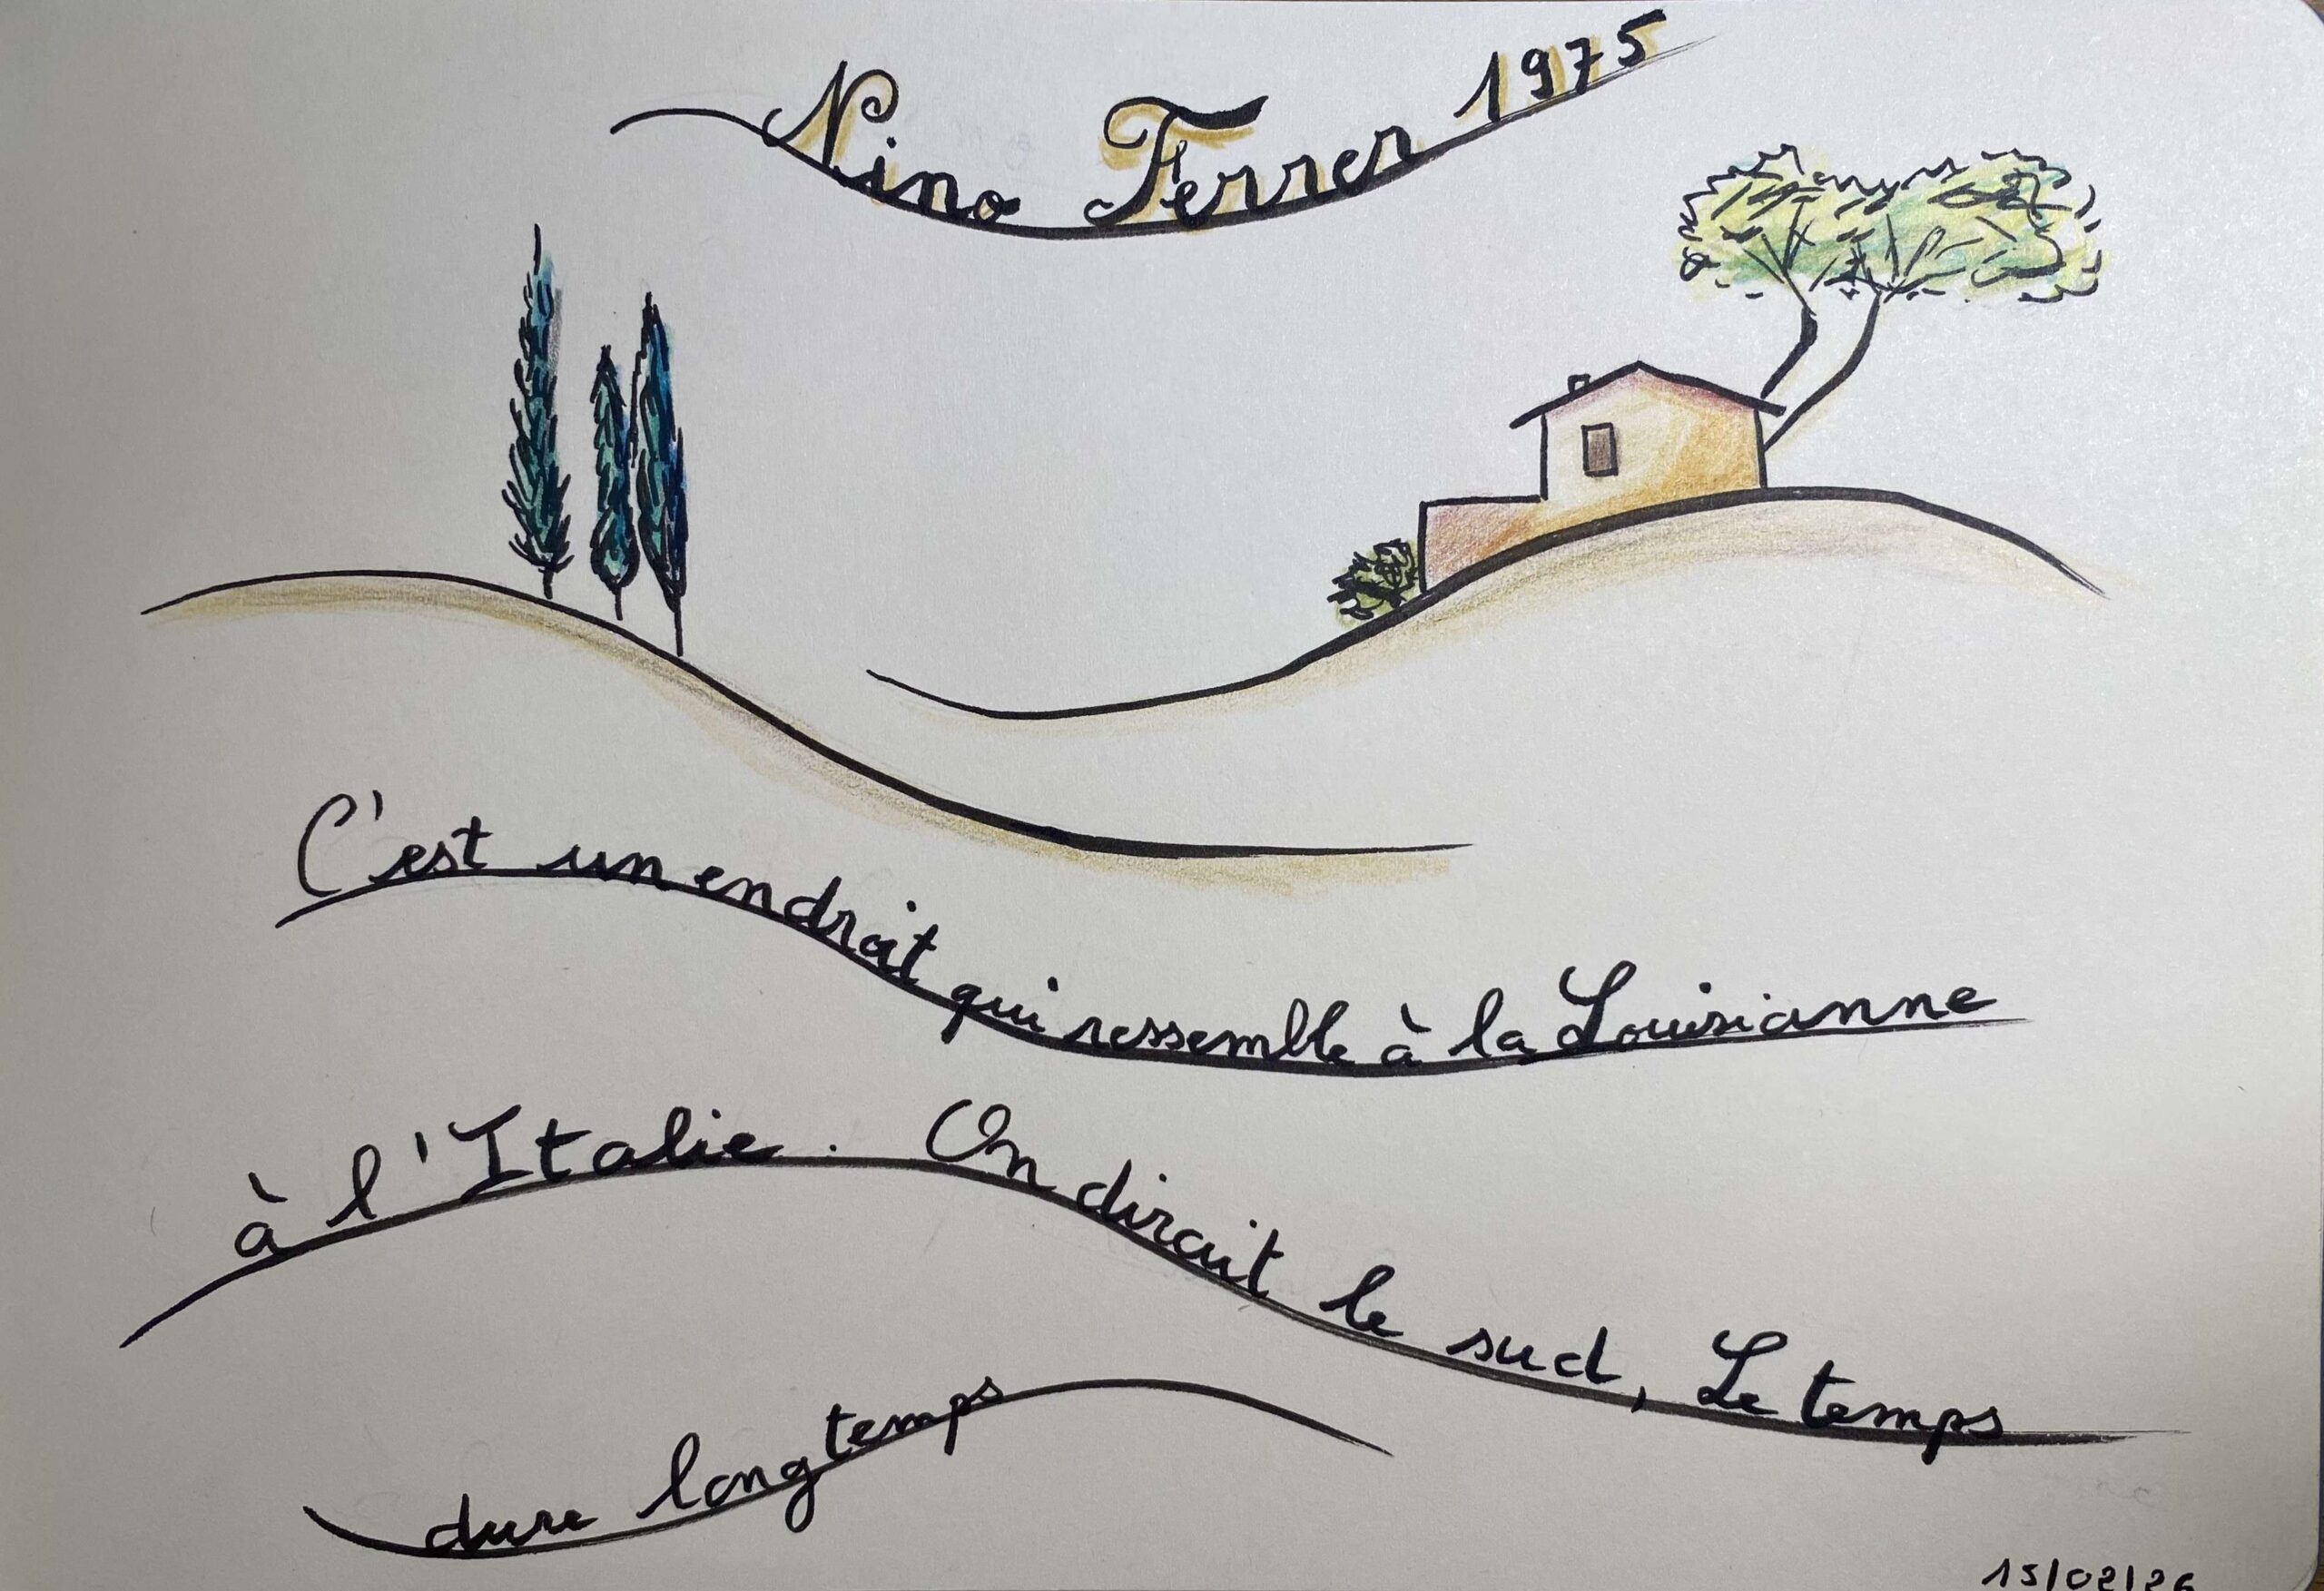 Nino Ferrer 1975
C'est un endroit qui ressemble à la Louisianne
à l'Italie. On dirait le sud, Le temps
dure longtemps
15/02/26